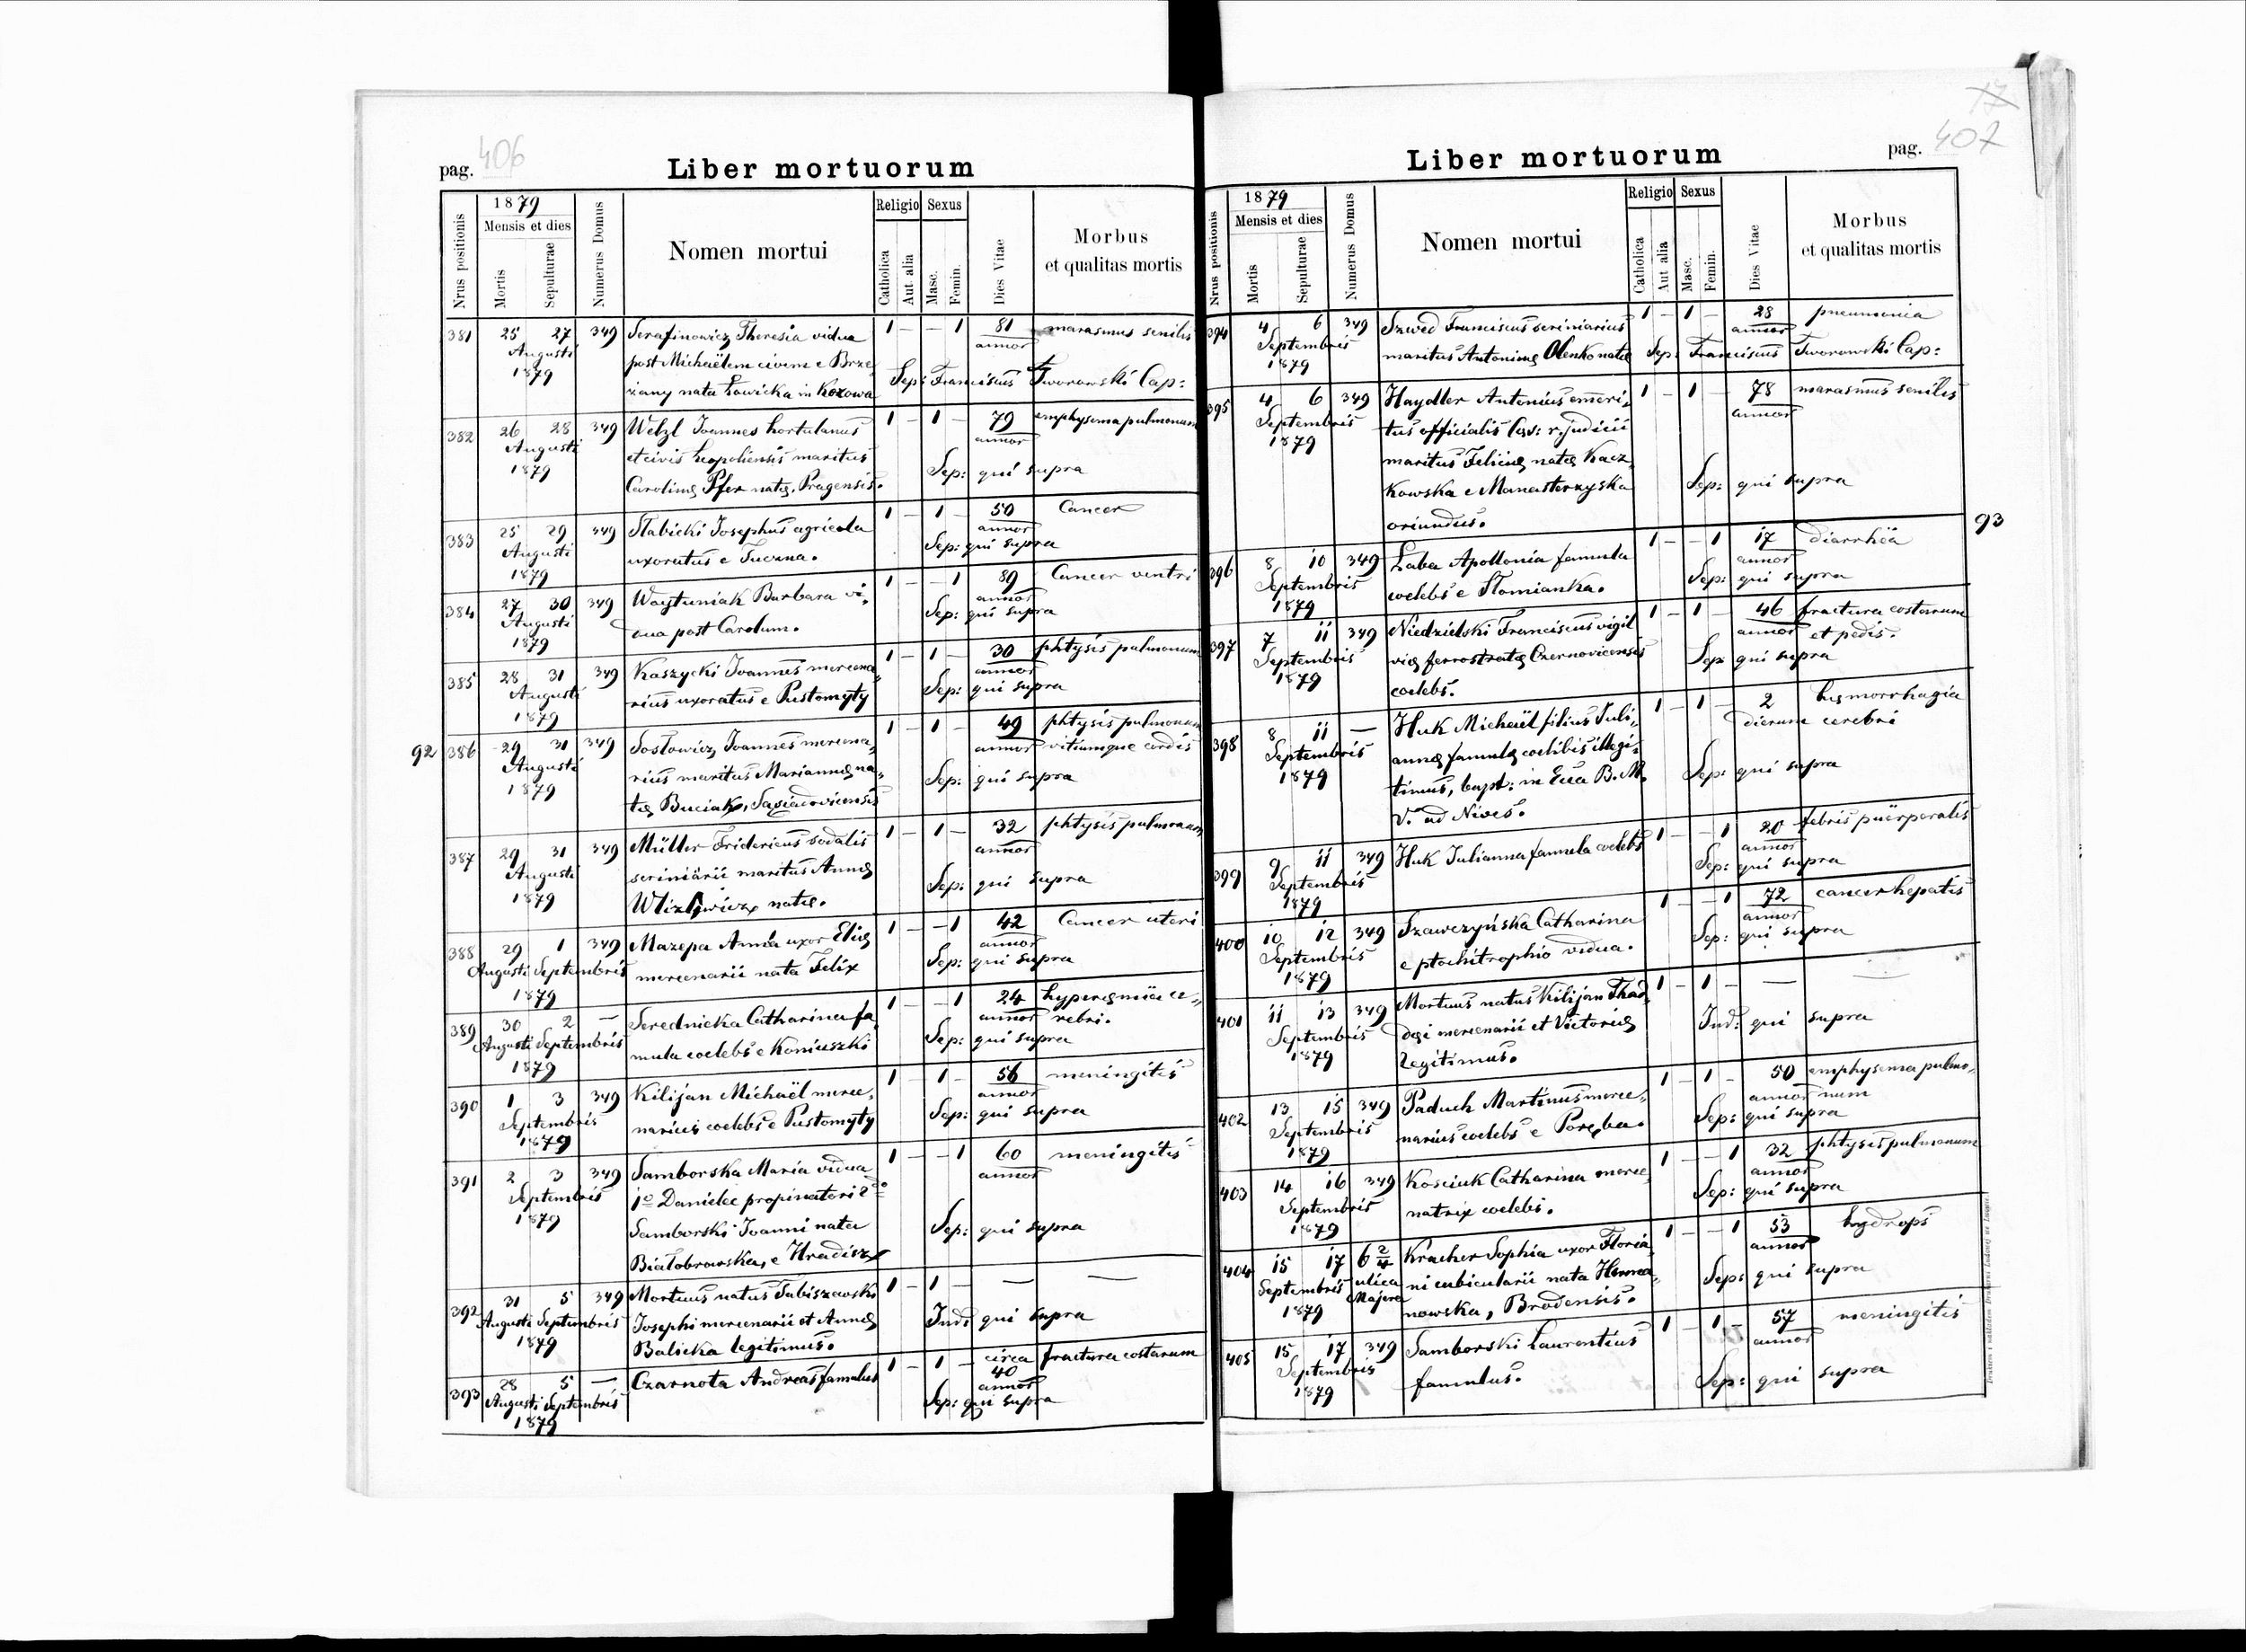 pag. 406
Liber mortuorum
Nrus positionis
1879
Mensis et dies
Mortis
Sepulturae
Numerus Domus
Nomen mortui
Religio
Catholica
Aut. alia
Sexus
Masc.
Femin.
Dies Vitae
Morbus
et qualitas mortis
381 25 27 349 Serafinowicz Theresia vidua 1 — — 1 81 marasmus senilis
Augusti post Michaëlem civem e Brze annor
1879 zany nata Łowicka in Kozowa Sep: Franciscus Tworowski Cap:
382 26 28 349 Welzl Joannes hortulanus 1 — 1 — 79 emphysema pulmonum
Augusti et civis leopoliensis maritus annor
1879 Carolinę Pfer natę, Pragensis. Sep: qui supra
383 25 29 349 Słabicki Josephus agricola 1 — 1 — 50 Cancer
Augusti uxoratus e Tuczna. annor
1879 Sep: qui supra
384 27 30 349 Woytuniak Barbara vi„ 1 — — 1 89 Cancer ventri
Augusti dua post Carolum. annor
1879 Sep: qui supra
385 28 31 349 Kaszycki Joannes mercena„ 1 — 1 — 30 phtysis pulmonum
Augusti rius uxoratus e Pustomyty annor
1879 Sep: qui supra
92 386 29 31 349 Sosłowicz Joannes mercena„ 1 — 1 — 49 phtysis pulmonum
Augusti rius maritus Mariannę na„ annor vitiumque cordis
1879 tę Buciak, Sasiadovicensis Sep: qui supra
387 29 31 349 Müller Fridericus sodalis 1 — 1 — 32 phtysis pulmonum
Augusti scriniärii maritus Annę annor
1879 natę. Sep: qui supra
388 29 1 349 Mazepa Anna uxor Elię 1 — — 1 42 Cancer uteri
Augusti Septembris mercenarii nata Felix annor
1879 Sep: qui supra
389 30 2 — Serednicka Catharina fa„ 1 — — 1 24 hyperęmia ce„
Augusti Septembris mula coelebs e Koniuszki annor rebri.
1879 Sep: qui supra
390 1 3 349 Kilijan Michaël merce„ 1 — 1 — 56 meningitis
Septembris narius coelebs e Pustomyty annor
1879 Sep: qui supra
391 2 3 349 Samborska Maria vidua 1 — — 1 60 meningitis
Septembris 1o Danielec propinatori 2do annor
1879 Samborski Joanni nata Sep: qui supra
Białobrowska, e Hradisz
392 31 5 349 Mortuus natus Subiszewski 1 — 1 — —
Augusti Septembris Josephi mercenarii et Annę Ind: qui supra
1879 Balicka legitimus.
393 28 5 — Czarnota Andreas famulus 1 — 1 — circa fractura costarum
Augusti Septembris 40 annor
1879 Sep: qui supra
17
pag. 407
Liber mortuorum
Nrus positionis
1879
Mensis et dies
Mortis
Sepulturae
Numerus Domus
Nomen mortui
Religio
Catholica
Aut alia
Sexus
Masc.
Femin.
Dies Vitae
Morbus
et qualitas mortis
394 4 6 349 Szwed Franciscus scriniarius 1 — 1 — 28 pneumonia
Septembris maritus Antoninę Olenko natę annor
1879 Sep: Franciscus Tworowski Cap:
395 4 6 349 Haydler Antonius emeri„ 1 — 1 — 78 marasmus senilis
Septembris tus officialis Cęs: r. judicii annor
1879 maritus Felicię natę Kacz„
kowska e Manasterzyska Sep: qui supra
oriundus.
93
396 8 10 349 Łaba Apollonia famula 1 — — 1 17 diarrhëa
Septembris coelebs e Słomianka. annor
1879 Sep: qui supra
397 7 11 349 Niedzielski Franciscus vigil 1 — 1 — 46 fractura costarum
Septembris vię ferrostratę Czernovicensis annor et pedis.
1879 coelebs. Sep: qui supra
398 8 11 — Huk Michaël filius Juli„ 1 — 1 — 2 hęmorrhagia
Septembris annę famulę coelibis illegi„ dierum cerebri
1879 timus, bapt: in Ecca B. M. Sep: qui supra
V. ad Nives.
399 9 11 349 Huk Julianna famula coelebs 1 — — 1 20 febris puërperalis
Septembris annor
1879 Sep: qui supra
400 10 12 349 Szawczyńska Catharina 1 — — 1 72 cancer hepatis
Septembris e ptochitrophio vidua. annor
1879 Sep: qui supra
401 11 13 349 Mortuus natus Kilijan Thad„ 1 — 1 — —
Septembris dęi mercenarii et Victorię Ind: qui supra
1879 Legitimus.
402 13 15 349 Paduch Martinus merce„ 1 — 1 — 50 emphysema pulmo„
Septembris narius coelebs e Poręba. annor num
1879 Sep: qui supra
403 14 16 349 Kosciuk Catharina merce„ 1 — — 1 32 phtysis pulmonum
Septembris natrix coelebs. annor
1879 Sep: qui supra
404 15 17 6 2/4 Kracher Sophia uxor Floria„ 1 — — 1 53 hydrops
Septembris ulica ni cubicularii nata Herma„ annor
1879 Majera nowska, Brodensis. Sep: qui supra
405 15 17 349 Samborski Laurentius 1 — 1 — 57 meningitis
Septembris famulus. annor
1879 Sep: qui supra